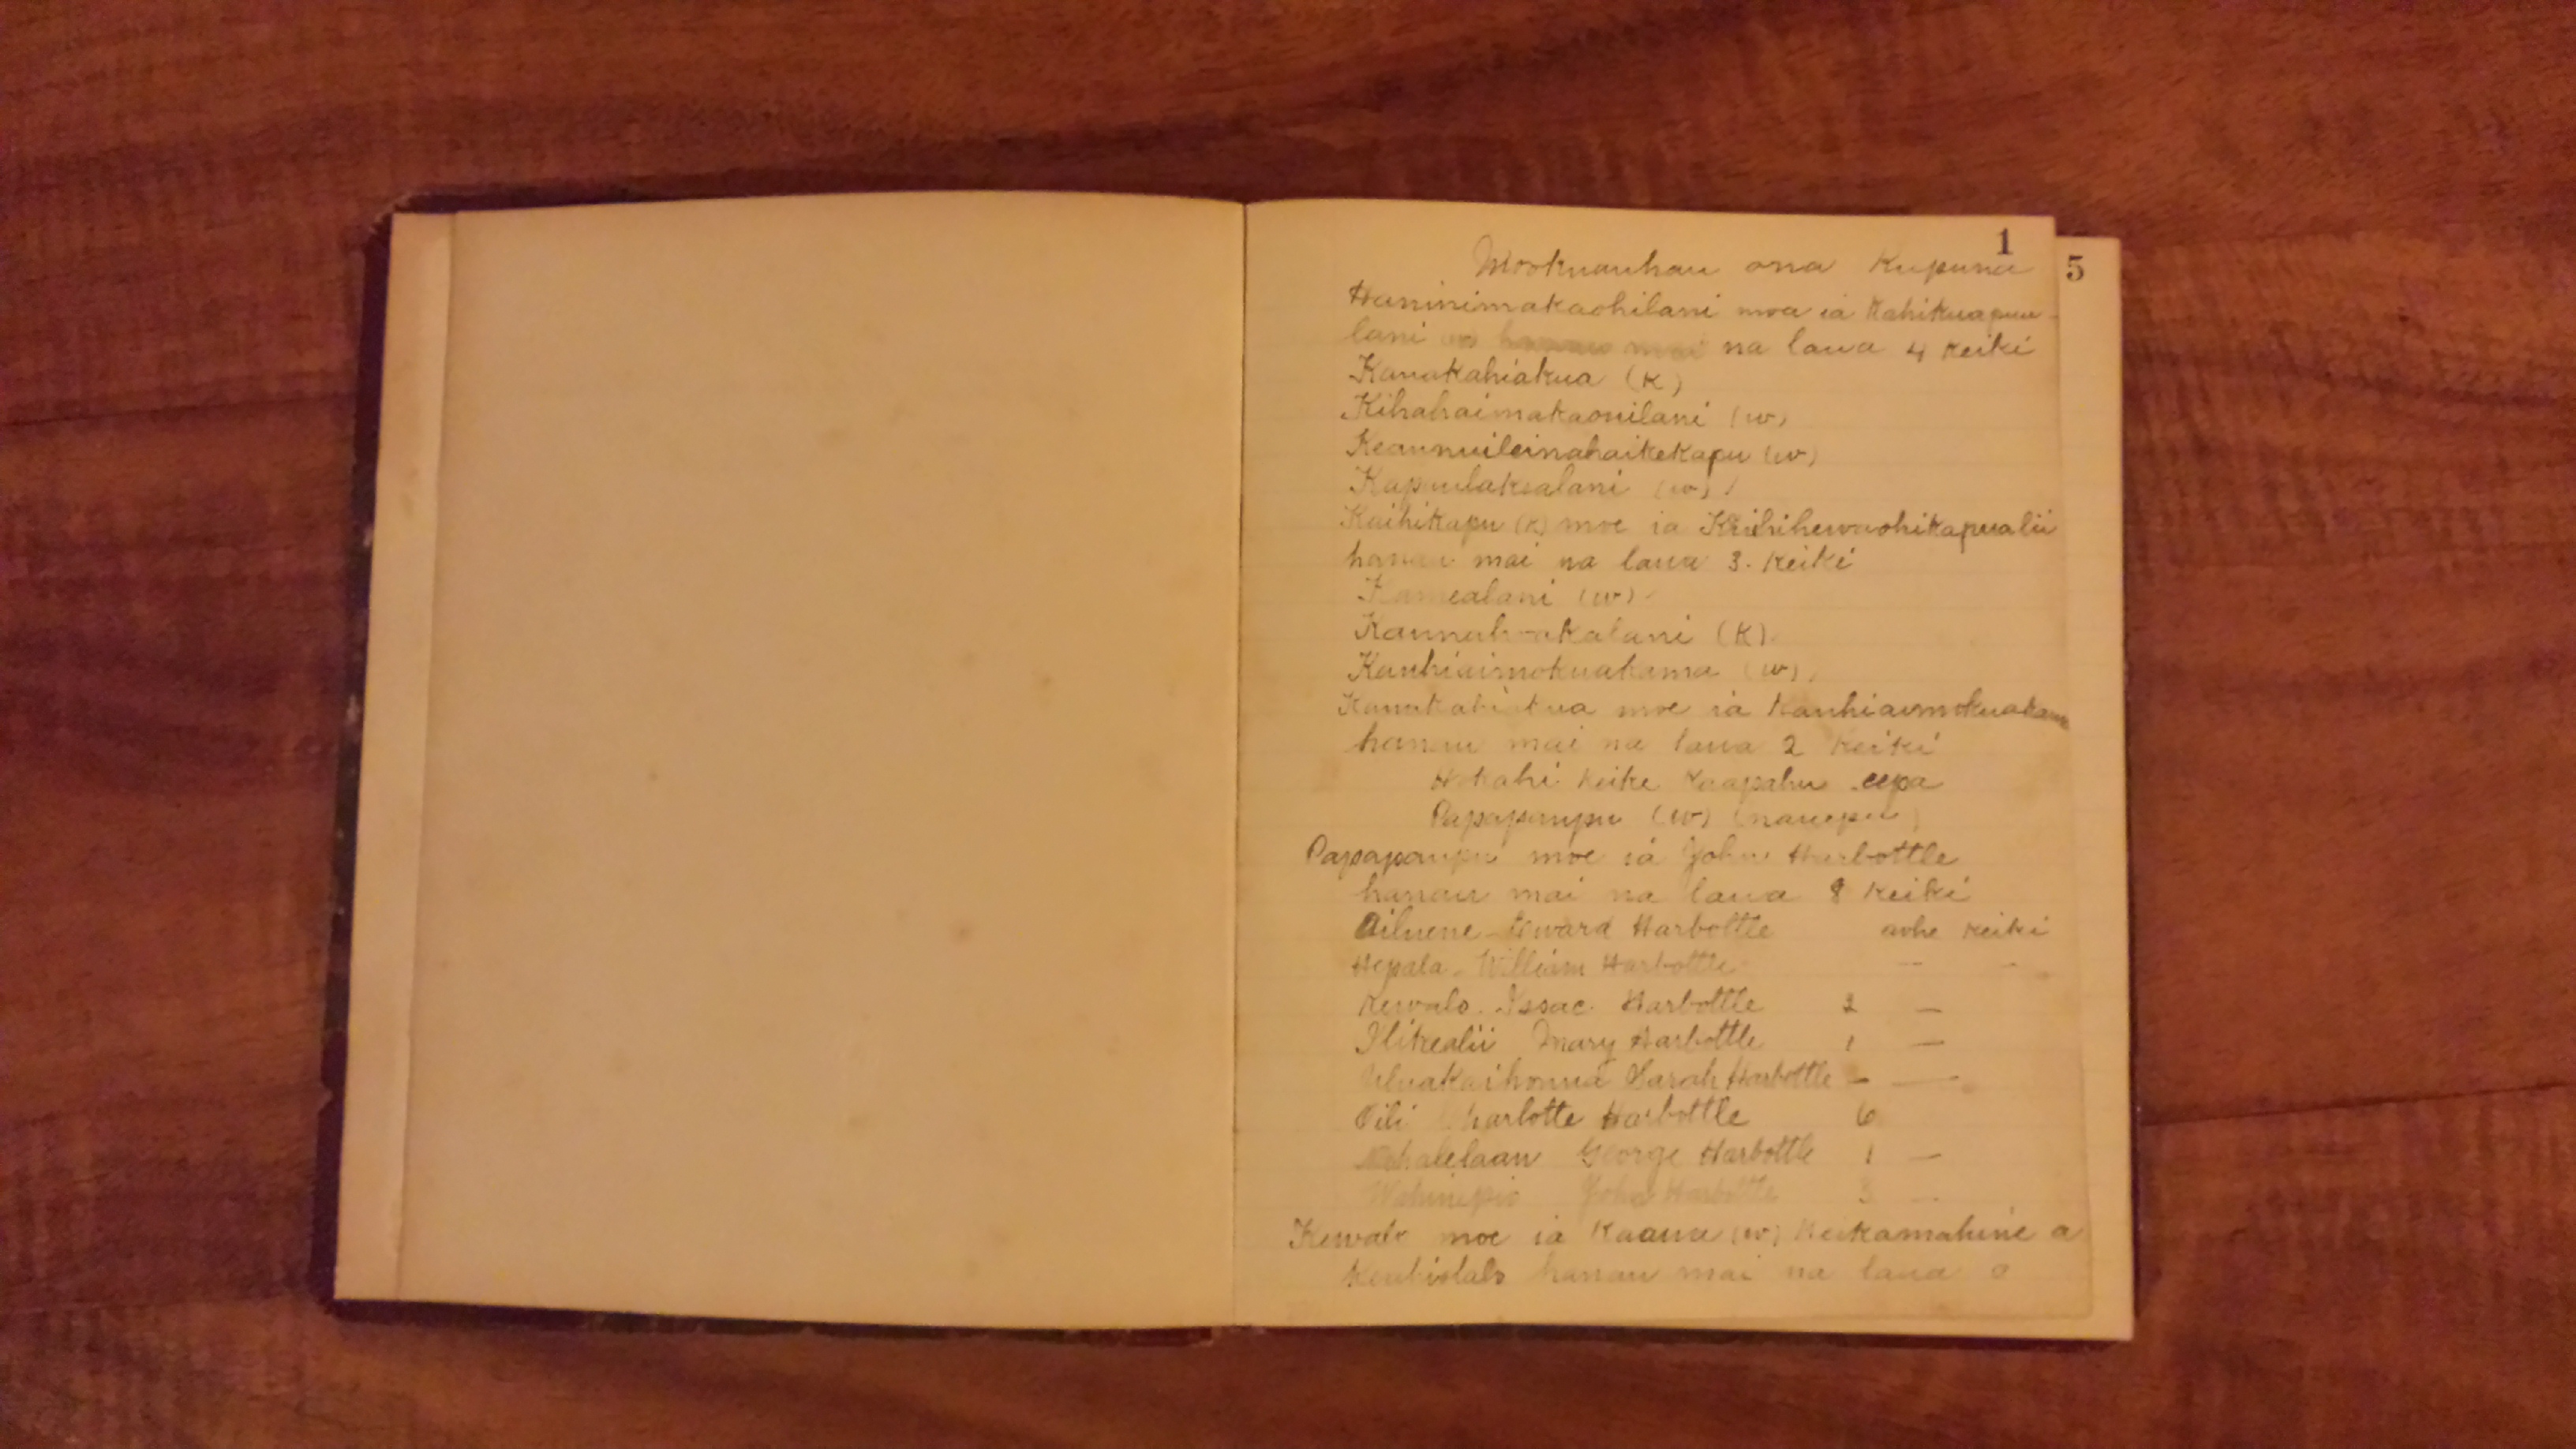 1
5
Mookuauhau ona Kupuna
Haninimakaohilani moe ia Kahikuapuu-
lani na laua 4 keiki
Kanakahiakua (K)
Kihahaimakaonilani (w)
Keaunuileinahaikekapu (w)
Kapuulakoalani (w)
Kaihikapu (K) moe ia Keihihewaohikapualii
hanau mai na laua 3. keiki
Kamealani (w)
(K)
Kauhiaimokuakama (w)
Kanakahiakua moe ia Kauhiaimokuakama
hanau mai na laua 2 keiki
Hokahi keike Kaapahu .eepa
Papapaupu (w)
Papapaupu moe ia John Harbottle
hanau mai na laua 8 keiki
Edward Harbottle aohe keiki
Hepala - William Harbottle — -
Kewalo. Issac. Harbottle —
Ilikealii Mary Harbottle 1 —
Sarah Harbottle - —
Pili Charlotte Harbottle 6
George Harbottle 1 —
Wahinepio John Harbottle 3 —
Kewalo moe ia Kaaua (w) Keikamahine a
hanau mai na laua o